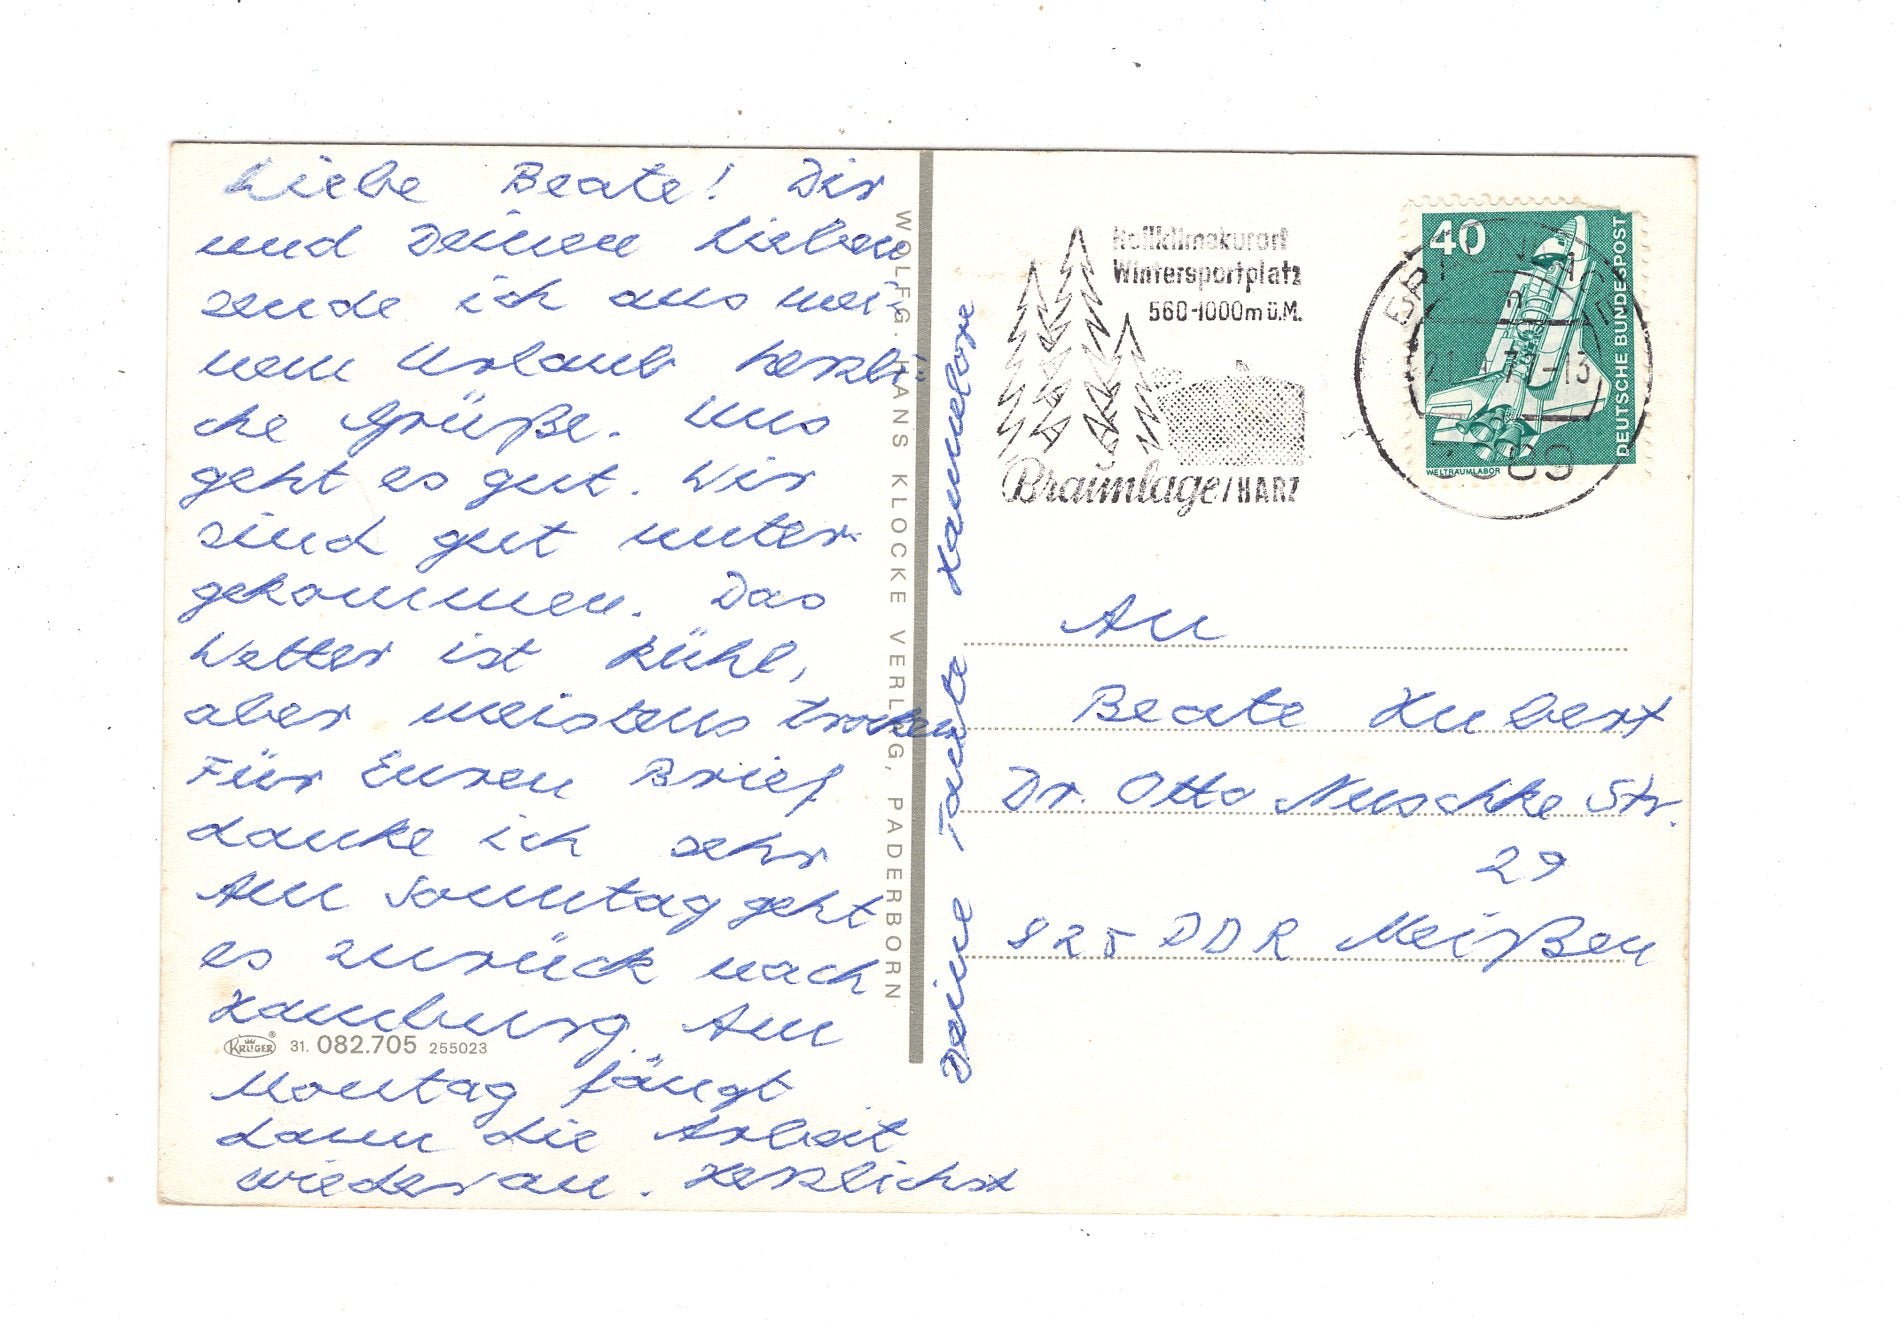 Liebe Beate! Dir
und Deinen Lieben
sende ich aus mei-
nem Urlaub herzli-
che Grüße. Uns
geht es gut. Wir
sind gut unter-
gekommen. Das
Wetter ist kühl,
aber meistens trocken
Für Euren Brief
danke ich sehr
Am Sonntag geht
es zurück nach
Hamburg. Am
Montag fängt
dann die Arbeit
wieder an. Herzlichst
Deine Tante Hannelore
WOLFG. HANS KLOCKE VERLAG, PADERBORN
KRÜGER 31. 082.705 255023
Heilklimakurort
Wintersportplatz
560-1000m ü.M.
Braunlage/HARZ
40
DEUTSCHE BUNDESPOST
WELTRAUMLABOR
An
Beate Hubert
Dr. Otto Nuschke Str.
29
825 DDR Meißen